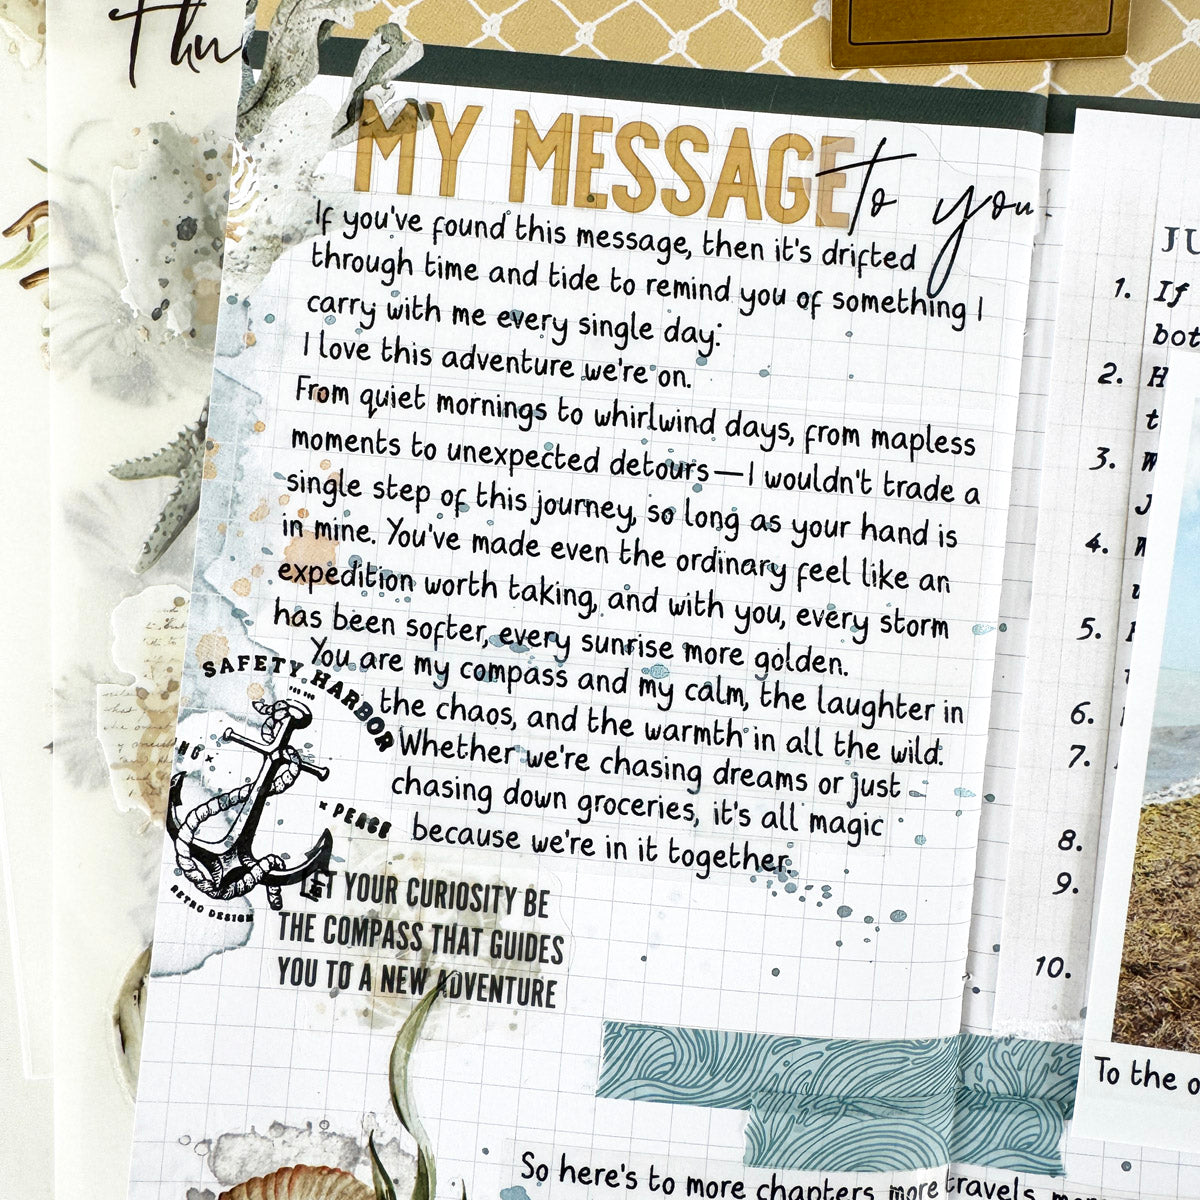 MY MESSAGE to you
If you've found this message, then it's drifted
through time and tide to remind you of something I
carry with me every single day:
I love this adventure we're on.
From quiet mornings to whirlwind days, from mapless
moments to unexpected detours—I wouldn't trade a
single step of this journey, so long as your hand is
in mine. You've made even the ordinary feel like an
expedition worth taking, and with you, every storm
has been softer, every sunrise more golden.
You are my compass and my calm, the laughter in
the chaos, and the warmth in all the wild.
Whether we're chasing dreams or just
chasing down groceries, it's all magic
because we're in it together.
SAFETY HARBOR
× PEACE
RETRO DESIGN
LET YOUR CURIOSITY BE
THE COMPASS THAT GUIDES
YOU TO A NEW ADVENTURE
So here's to more chapters, more travels, mor
1. If
bot
2. H
t
3. W
J
4.
5.
6.
7.
8.
9.
10.
To the o